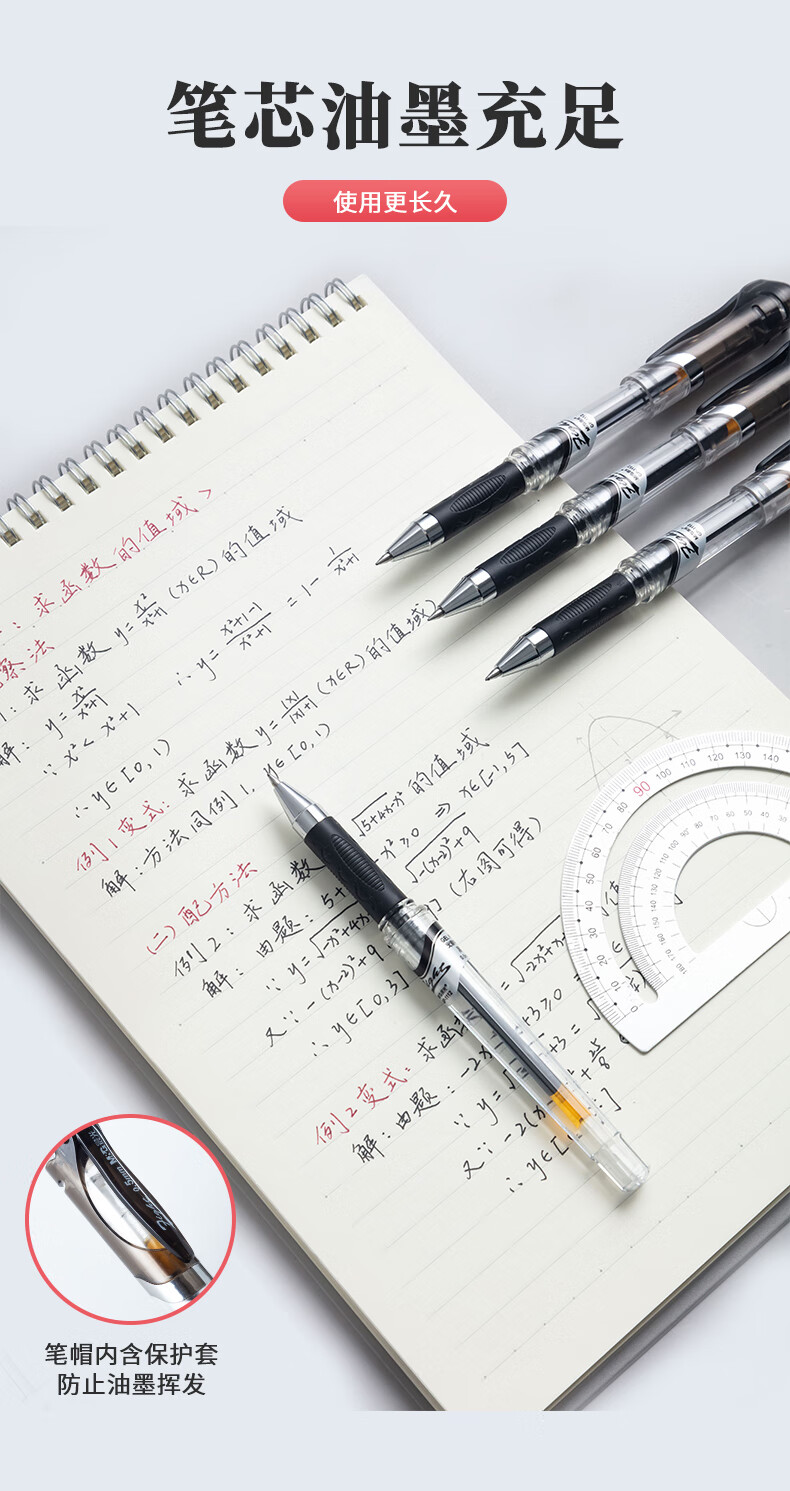 笔芯油墨充足
使用更长久
：求函数的值域>
察法
1：求函数 y=x²/x²+1 (x∈R) 的值域
解：y=x²/x²+1 ∴y=x²+1-1/x²+1 =1-1/x²+1
∵x²<x²+1
∴y∈[0,1)
例1变式：求函数y=|x|/|x|+1 (x∈R)的值域
解：方法同例1, y∈[0,1)
(二)配方法
例2：求函数 √5+4x-x² 的值域
解：由题：5+ -x²≥0 ⇒ x∈[-1,5]
∵y=√-x²+4x √-(x-2)²+9
又∵-(x-2)²+9 (右图可得)
∴y∈[0,3]
例2变式：求函 =√-2x²+x
解：由题：-2x +3≥0
∵y=√ +3=√
又∵-2(x- +25/8
∴y∈[
0.5mm
笔帽内含保护套
防止油墨挥发